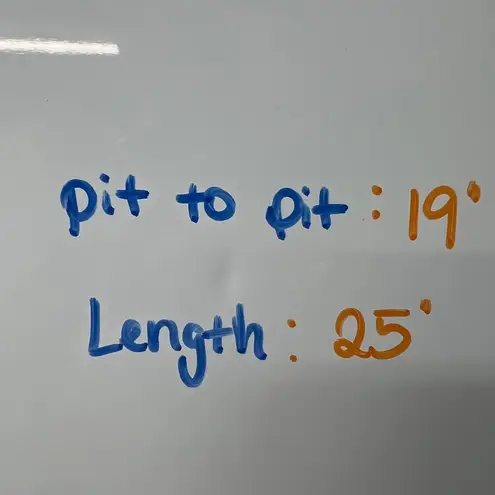 pit to pit : 19'
Length : 25'